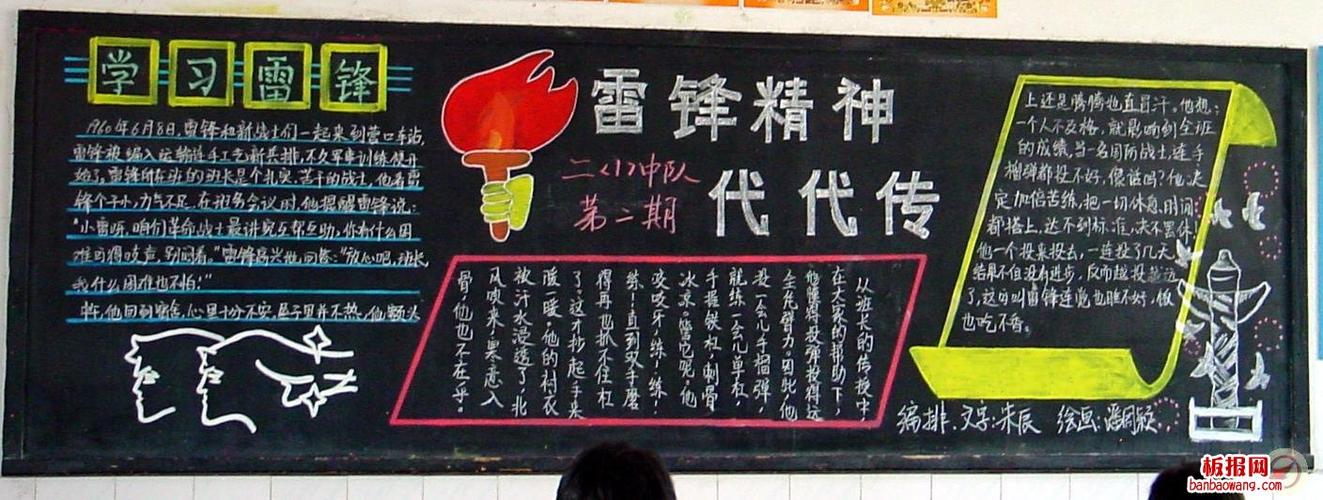 学习雷锋
1960年6月8日,雷锋和新战士们一起来到营口车站,
雷锋被编入运输连手工艺新兵排,不久军事训练便开
始了,雷锋所在班的班长是个扎实、苦干的战士,他看雷
锋个子小,力气不足,在班务会议时,他提醒雷锋说:
“小雷呀,咱们革命战士最讲究互帮互助,你有什么困
难可得吱声,别闷着。”雷锋高兴地回答:“放心吧,班长,
我什么困难也不怕!”
他回到宿舍,心里十分不安,屋子里并不热,他额头
雷锋精神
代代传
二<1>中队
第二期
从班长的传授中,
在大家的帮助下,
他懂得投弹投得远
全凭臂力。因此,他
投一会儿手榴弹,
就练一会儿单杠,
手握铁杠,刺骨
冰凉。管它呢,他
咬咬牙,练!练!
练!直到双手磨
得再也抓不住杠
了,这才抄起手来
暖一暖。他的衬衣
被汗水浸透了,北
风吹来,寒意入
骨,他也不在乎。
上还是腾腾地直冒汗。他想:
一个人不及格,就影响到全班
的成绩,当一名国防战士,连手
榴弹都投不好,像话吗?他决
定加倍苦练,把一切休息时间
都搭上,达不到标准,决不罢休!
他一个投来投去,一连投了几天,
结果不但没有进步,反而越投越远
了,这可叫雷锋连觉也睡不好,饭
也吃不香。
编排、文字:朱辰 绘画:潘
板报网
banbaowang.com